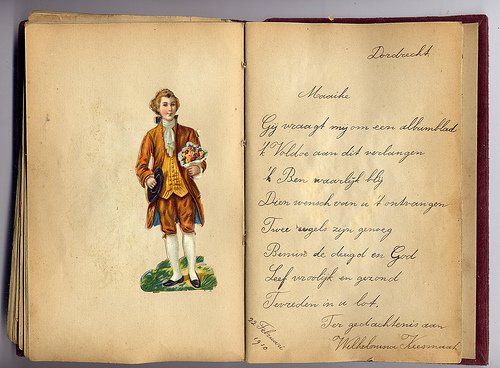 Dordrecht
Maaike
Gij vraagt my om een albumblad
'k Voldoe aan dit verlangen
'k Ben waarlijk blij
Dien wensch van u t' ontvangen
Twee regels zijn genoeg
Bemin de deugd en God
Leef vroolijk en gezond
Tevreden in u lot.
Ter gedachtenis aan
Wilhelmina
22 Februari
1910